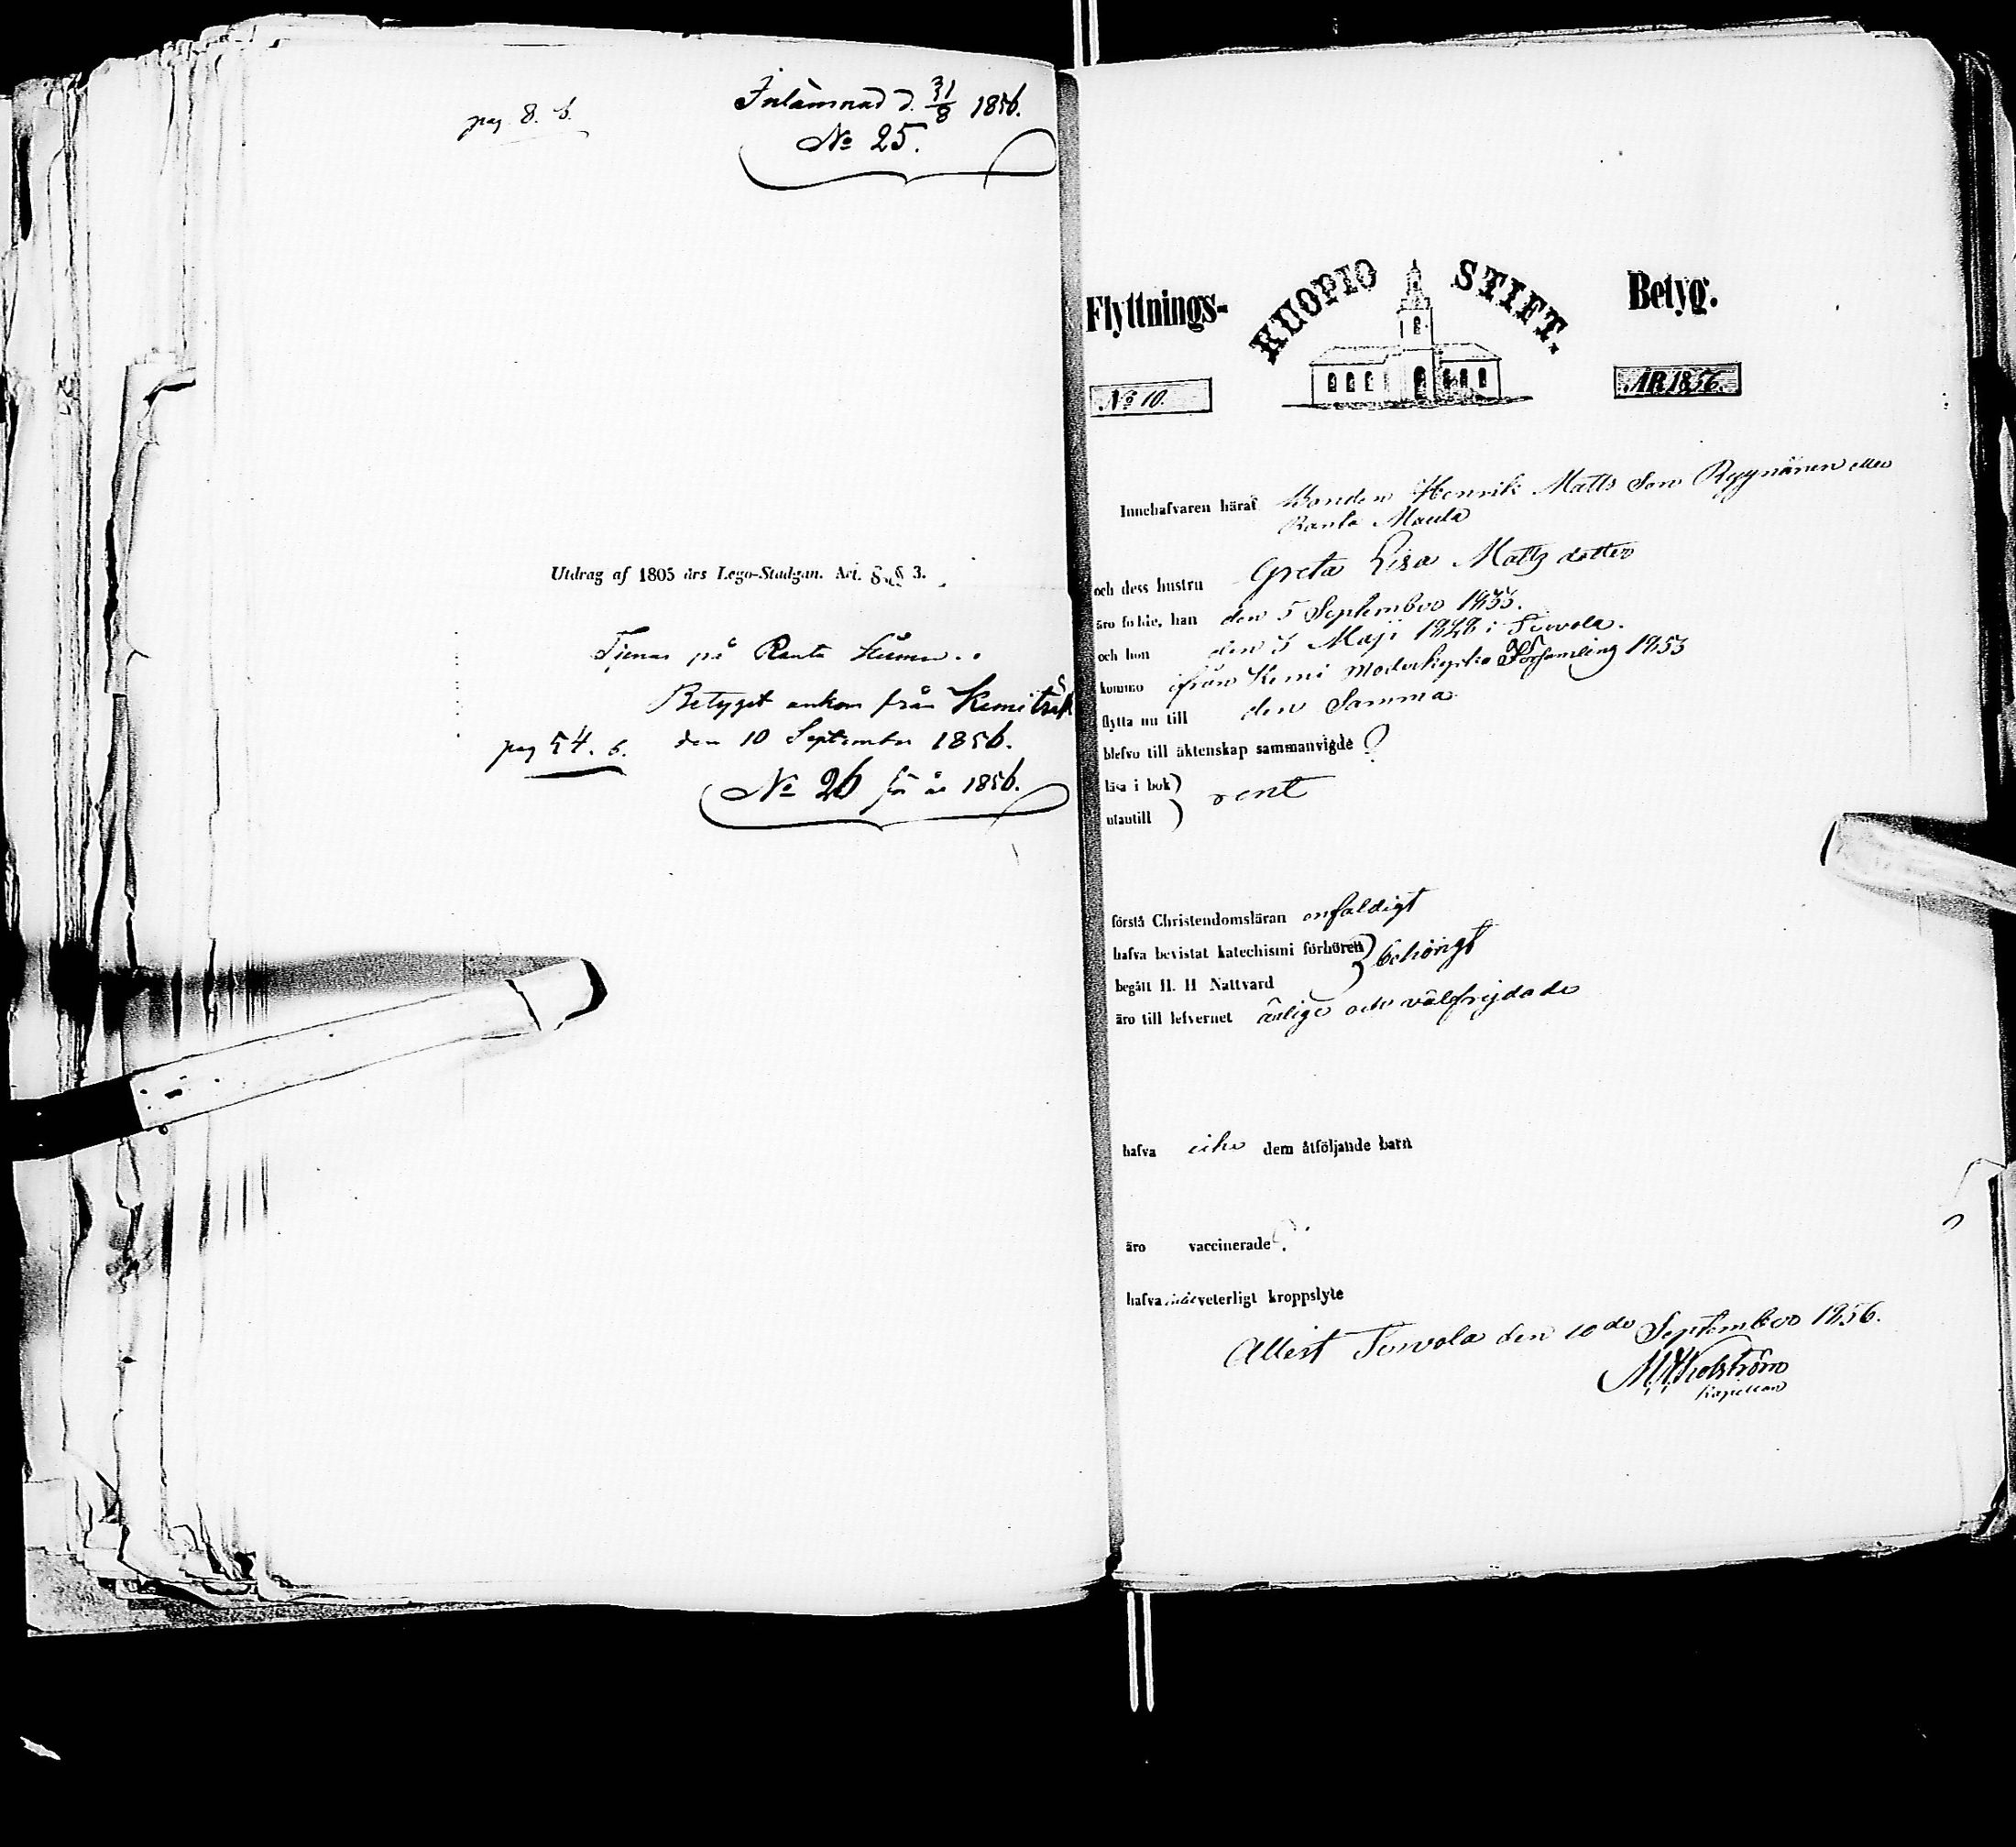 pag 8. b.
Inlämnad d. 31/8 1856.
No 25.
Utdrag af 1805 års Lego-Stadgan. Art. § 3.
Tjenar på Ranta
Betyget ankom från Kemiträsk
den 10 September 1856.
pag 54. b.
No 26 för år 1856.
Flyttnings- KUOPIO STIFT. Betyg.
No 10. ÅR 1856.
Innehafvaren häraf Bonden Henrik Matts Son Ryynänen eller
Ranta Maula
och dess hustru Greta Lisa Matts dotter
äro födde, han den 5 September 1833.
och hon den 3 Maji 1828 i Terwola.
kommo ifrån Kemi Moderkyrko Församling 1853
flytta nu till den Samma
blefvo till äktenskap sammanvigde ?
läsa i bok)
utantill ) rent
förstå Christendomsläran enfaldigt
hafva bevistat katechismi förhören)
begått H. H Nattvard } behörigt
äro till lefvernet ärlige och välfrejdade
hafva icke dem åtföljande barn
äro vaccinerade?
hafva icke veterligt kroppslyte
Attest Terwola den 10de September 1856.
Kapellan